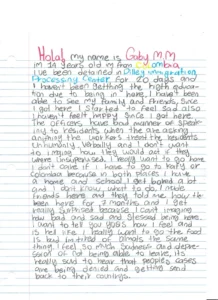 Hola! my name is Gaby M.M
im 14 years old im from Colombia
I've been detained in Dilley immigration
Processing Center for 20 days and
I haven't been getting the right educa-
tion due to being in here, I haven't been
able to see my family and friends, Since
I got here. I've started to feel sad also
I haven't feelt happy since I got here.
The officers have bad manner of speak-
ing to residents when the are asking
anything the workers treat the residents
unhumanly, verbally and I don't want
to imagine how they would act if they
where unsupervised. I really want to go home
I don't care if I have to go to Party or
Colombia because in both places I have
a home and school. I get bored a lot
and I don't know what to do. I make
friends here and they told me how to
been here for 7 months and I get
really surprised because I can't imagin
how bad and sad and stressed being here.
I want to tell you guys how I feel and
is hel like I really want to go the food
is bad instead of almost the same
thing. feel so much sadness and depre-
ssion of not being able to leave, its
really sad to hear that peoples cases
are being denied and getting send
back to their countrys.